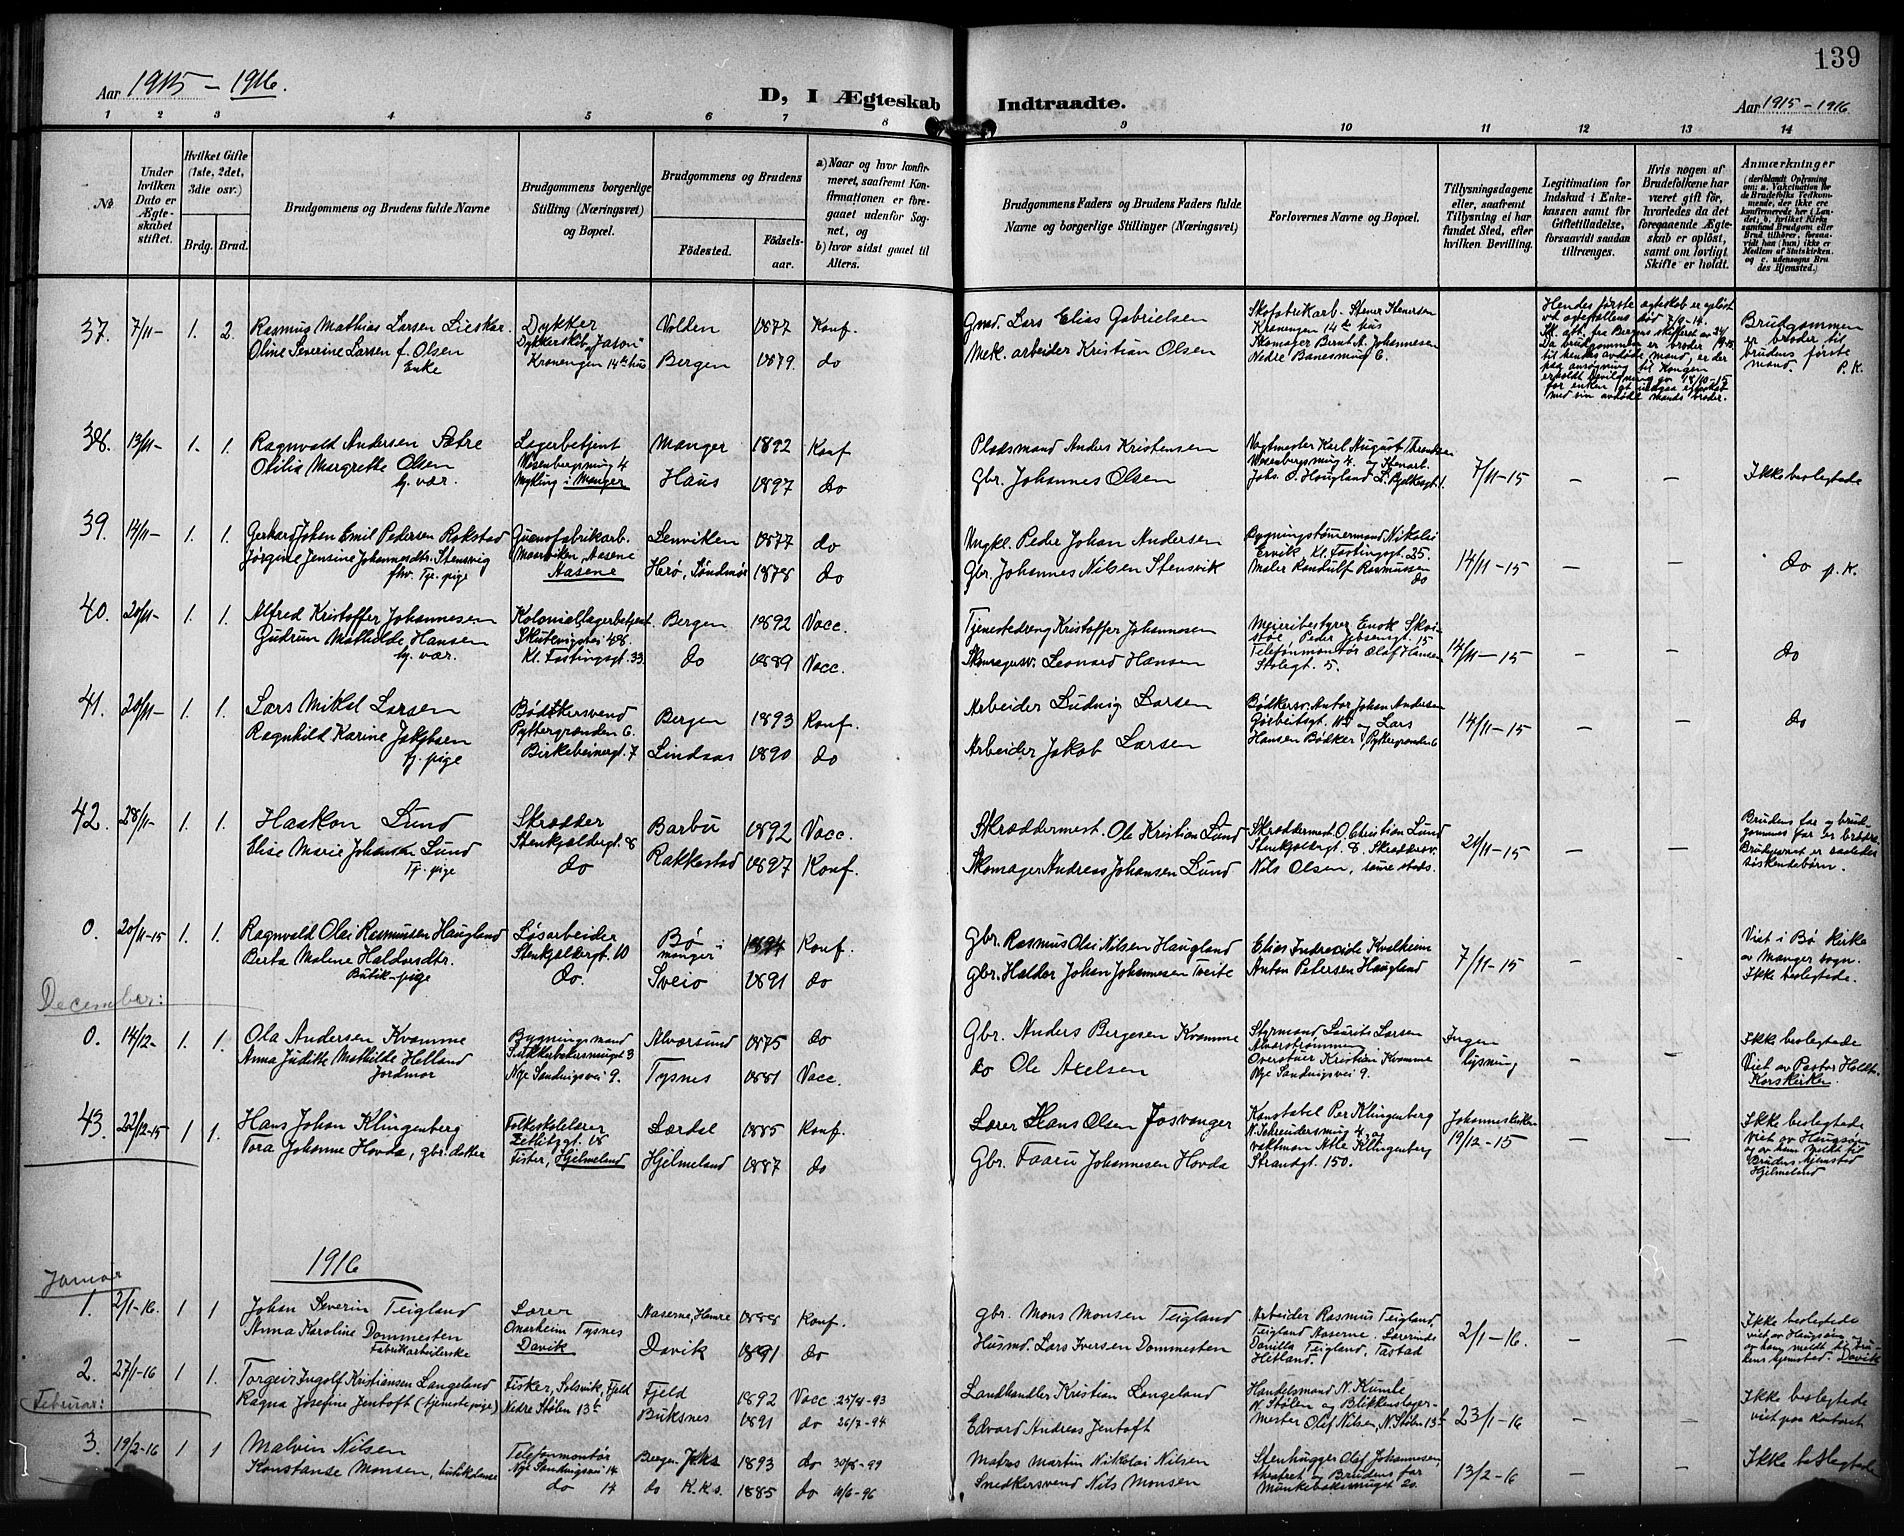 139
Aar 1915 – 1916.
D, I Ægteskab Indtraadte.
Aar 1915 – 1916
1 2 3 4 5 6 7 8 9 10 11 12 13 14
No
Under hvilken Dato er Ægteskabet stiftet.
Hvilket Gifte (1ste, 2det, 3die osv.)
Brdg. Brud.
Brudgommens og Brudens fulde Navne
Brudgommens borgerlige Stilling (Næringsvei) og Bopæl.
Brudgommens og Brudens
Fødested. Fødselsaar.
a) Naar og hvor konfirmeret, saafremt Konfirmationen er foregaaet udenfor Sognet, og
b) hvor sidst gaaet til Alters.
Brudgommens Faders og Brudens Faders fulde Navne og borgerlige Stillinger (Næringsvei)
Forlovernes Navne og Bopæl.
Tillysningsdagene eller, saafremt Tillysning ei har fundet Sted, efter hvilken Bevilling.
Legitimation for Indskud i Enkekassen samt for Giftetilladelse, forsaavidt saadan tiltrænges.
Hvis nogen af Brudefolkene har været gift før, hvorledes da det foregaaende Ægteskab er opløst, samt om lovligt Skifte er holdt.
Anmærkninger
(deriblandt Oplysning om: a. Vakcination for de Brudefolks Vedkommende, der ikke ere konfirmerede her i Landet, b. hvilket Kirkesamfund Brudgom eller Brud tilhører, forsaavidt han (hun) ikke er Medlem af Statskirken, og c. udensogns Brudes Hjemsted.)
37. 7/11- 1. 2. Rasmus Mathias Larsen Lieskar. Dykker Volden 1877 Konf. Gmd. Lars Elias Gabrielsen
Oline Severine Larsen f. Olsen Dykkerskib „Jason" Bergen 1879. do Mek. arbeider Kristian Olsen
Enke Kronengen 14 de hus
Skofabrikarb. Stener Stenersen
Kronengen 14 de hus
Skomager Bernt A. Johannesen
Nedre Banesmug 6.
Hendes første egteskab er opløst
ved egtefællens død 7/9-14.
Sk. att. fra Bergens skifteret av 24/9-15.
Da brudgommen er broder
til hendes avdøde mand, er der
paa ansøgning til Kongen
erholdt bevilgning av 18/10-15
for enken at indgaa egteskab
med sin avdøde mands broder.
Brudgommen
er broder til
brudens første
mand. P.K.
38. 13/11- 1. 1. Ragnvald Andersen Sætre Lagerbetjent Manger 1892 Konf Pladsmand Anders Kristensen
Otilia Margrethe Olsen Wesenbergsmug 4 Haus 1897 do Gbr. Johannes Olsen
hj. vær. Mykling i Manger
Vogtmester Karl August Thrandsen
Wesenbergsmug 4. og Stenarb.
Johs. O. Hougland 7/11-15 – – Ikke beslegtede
39. 14/11- 1. 1. Gerhard Johan Emil Pedersen Rokstad Guanofabrikarb. Lenviken 1877 do Ungk. Peder Johan Andersen
Jørgine Jensine Johannesdtr. Stensvig Maarviken Aasene Herø, Søndmør 1878 do Gbr. Johannes Nilsen Stensvik
fhv. tj. pige Aasene
Bygningstømmermand Nikolai
Ervik Kl. Fastingsgt. 25.
Maler Randulf Rasmussen
do 14/11-15 – – do p.K.
40. 20/11- 1. 1. Alfred Kristoffer Johannesen Koloniallagerbetjent Bergen 1892 Vacc. Tjenestedreng Kristoffer Johannesen
Gudrun Mathilde Hansen Skutevigsvei 48. do 1889 Vacc. Skomagersv. Leonard Hansen
hj. vær. Kl. Fastingsgt. 33.
Meieribestyrer Enok Skei-
støl, Peder Jebsensgt. 15
Telefonmontør Olaf Hansen
Stølegt. 5. 14/11-15 – – do
41. 20/11- 1. 1. Lars Mikal Larsen Bødkersvend Bergen 1893 Konf. Arbeider Ludvig Larsen
Ragnhild Karine Jakobsen Pyttergrænden 6. Lindaas 1890 do Arbeider Jakob Larsen
tj. pige Birkebeinergt. 7
Bødkersv. Anton Johan Andersen
og Lars
Hansen Bødker, Pyttergrænden 6 14/11-15 – – do
42. 28/11- 1. 1. Haakon Lund Skrædder Barbu 1892 Vacc. Skræddermest. Ole Kristian Lund
Elise Marie Johansen Lund Stenkjeldergt. 8 Rakkestad 1897 Konf. Skomager Andreas Johansen Lund
Tj. pige do
Skræddermest. O. Christian Lund
Stenkjeldergt. 8. Skræddersv.
Nils Olsen, samesteds. 21/11-15 – –
Brudens far og brud-
gommens far er brødre.
Brudeparret er saaledes
søskendebørn.
0. 20/11-15 1. 1. Ragnvald Olai Rasmussen Haugland Løsarbeider Bø i manger 1894 Konf. Gbr. Rasmus Olai Nilsen Haugland
Berta Malene Haldorsdtr. Stenkjeldergt. 10 Sveio 1891 do Gbr. Haldor Johan Johannesen Tveite
Butik-pige do.
Elias Indreeide Kvalheim
Anton Petersen Haugland 7/11-15 – –
Viet i Bø kirke
av Manger sogn.
Ikke beslegtede.
December:
0. 14/12- 1. 1. Ola Andersen Kvamme Bygningsmand Alværsund 1875 do Gbr. Anders Bergesen Kvamme
Anna Juditte Mathilde Helland Sukkerbakersmuget 3 Tysnes 1881 Vacc. do Ole Axelsen
Jordmor Nye Sandvigsvei 9.
Styrmand Laurits Larsen
Alverstrømmen
Overstuer Kristian Kvamme
Nye Sandvigsvei 9. Ingen lysning – –
Ikke beslegtede
Viet av Pastor Holdt.
Korskirken.
43. 22/12-15 1 1. Hans Johan Klingenberg Folkeskolelærer Lærdal 1885 Konf. Lærer Hans Olsen Josvanger
Tora Johanne Hovda, gbr. datter Zetlitzgt. 18 Hjelmeland 1887 do Gbr. Taaru Johannesen Hovda
Fister, Hjelmeland
Konstabel Per Klingenberg
N. Schreudersmug 4,
vaktman Atle Klingenberg
Strandgt. 150. Johanneskirken 19/12-15 – –
Ikke beslegtede
Viet av Haugsøen
og av ham meldt til
Brudens hjemsted
Hjelmeland
1916
Januar
1. 2/1-16. 1 1 Johan Severin Teigland Lærer Aaserne, Hamre 1888 Konf. gbr. Mons Monsen Teigland
Anna Karoline Dommesten Omarheim Tysnes Davik 1891 do Husmd. Lars Iversen Dommesten
Fabrikarbeiderske Davik
Arbeider Rasmus Teigland,
Teigland Aaserne. Lærerinde
Danilla Teigland, Tastad
Hetland. 2/1-16. – –
Ikke beslegtede
viet av Haugsøen
og ham meldt til Bru-
dens hjemsted. Davik
2. 27/1-16 1 1. Torgeir Ingolf Kristiansen Langeland Fisker, Solsvik, Fjeld Fjeld 1892 Vacc 25/8-93 Landhandler Kristian Langeland
Ragna Josefine Jentoft (tjenestepige) Nedre Stølen 13 b Buksnes 1891 do 26/7-94 Edvard Andreas Jentoft
Handelsmand N. Kumle
N. Stølen og Blikkenslager-
mester Olaf Nilsen, N. Stølen 13 b 23/1-16 – –
Ikke beslegtede
viet paa Kontoret
Februar:
3. 19/2-16 1 1 Malvin Nilsen Telefonmontør Bergen J.k.s 1893 do 30/8-99 Matros Martin Nikolai Nilsen
Konstanse Monsen, butikdame Nye Sandvigsvei 14 do K.k.s. 1885 do 11/6-96 Snedkersvend Nils Monsen
do 14
Stenhugger Olaf Johannesen,
theatret og Brudens far
Munkebæksmuget 20. 13/2-16 – – Ikke beslegtede